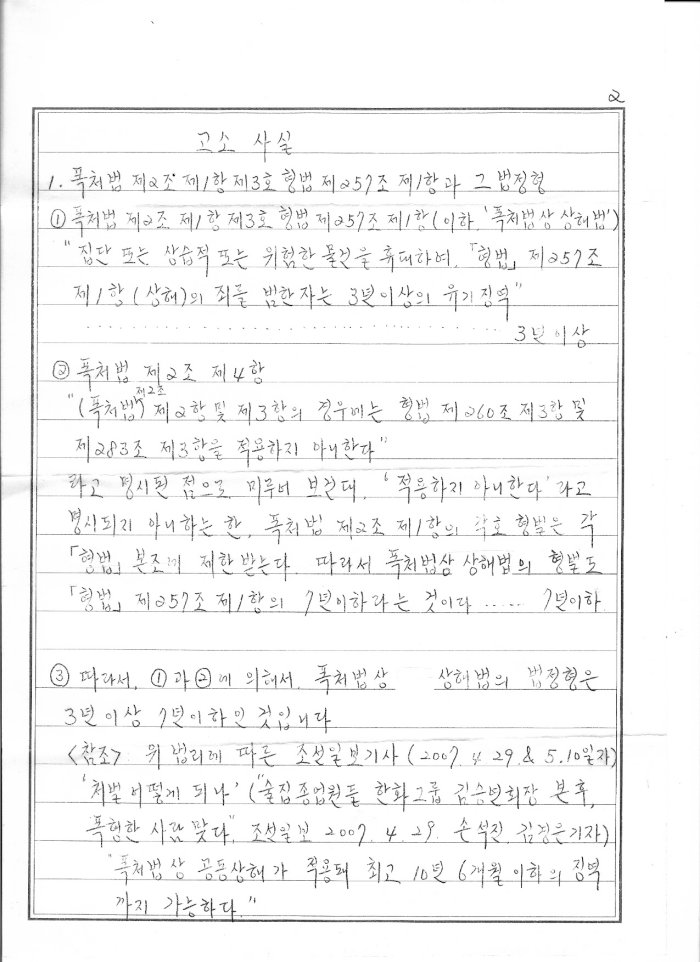 2
고소 사실
1. 폭처법 제2조 제1항 제3호 형법 제257조 제1항과 그 법정형
① 폭처법 제2조 제1항 제3호 형법 제257조 제1항(이하, '폭처법상 상해법')
"집단 또는 상습적 또는 위험한 물건을 휴대하여, 「형법」 제257조
제1항 (상해)의 죄를 범한자는 3년이상의 유기징역"
3년 이상
② 폭처법 제2조 제4항
제2조
"(폭처법) 제2항 및 제3항의 경우에는 형법 제260조 제3항 및
제283조 제3항을 적용하지 아니한다"
라고 명시된 점으로 미루어 보건대, '적용하지 아니한다' 라고
명시되지 아니하는 한, 폭처법 제2조 제1항의 각호 형벌은 각
「형법」 본조에 제한 받는다. 따라서 폭처법상 상해법의 형벌도
「형법」 제257조 제1항의 7년이하라는 것이다 …… 7년이하
③ 따라서, ①과 ②에 의해서, 폭처법상 상해법의 법정형은
3년 이상 7년이하인 것입니다
<참조> 위 법리에 따른 조선일보기사 (2007. 4. 29. & 5.10일자)
'처벌 어떻게 되나' ("술집종업원들 한화그룹 김승연회장 본후,
폭행한 사람 맞다", 조선일보 2007. 4. 29. 손석진, 김경은기자)
"폭처법상 공동상해가 적용돼 최고 10년 6개월 이하의 징역
까지 가능하다."